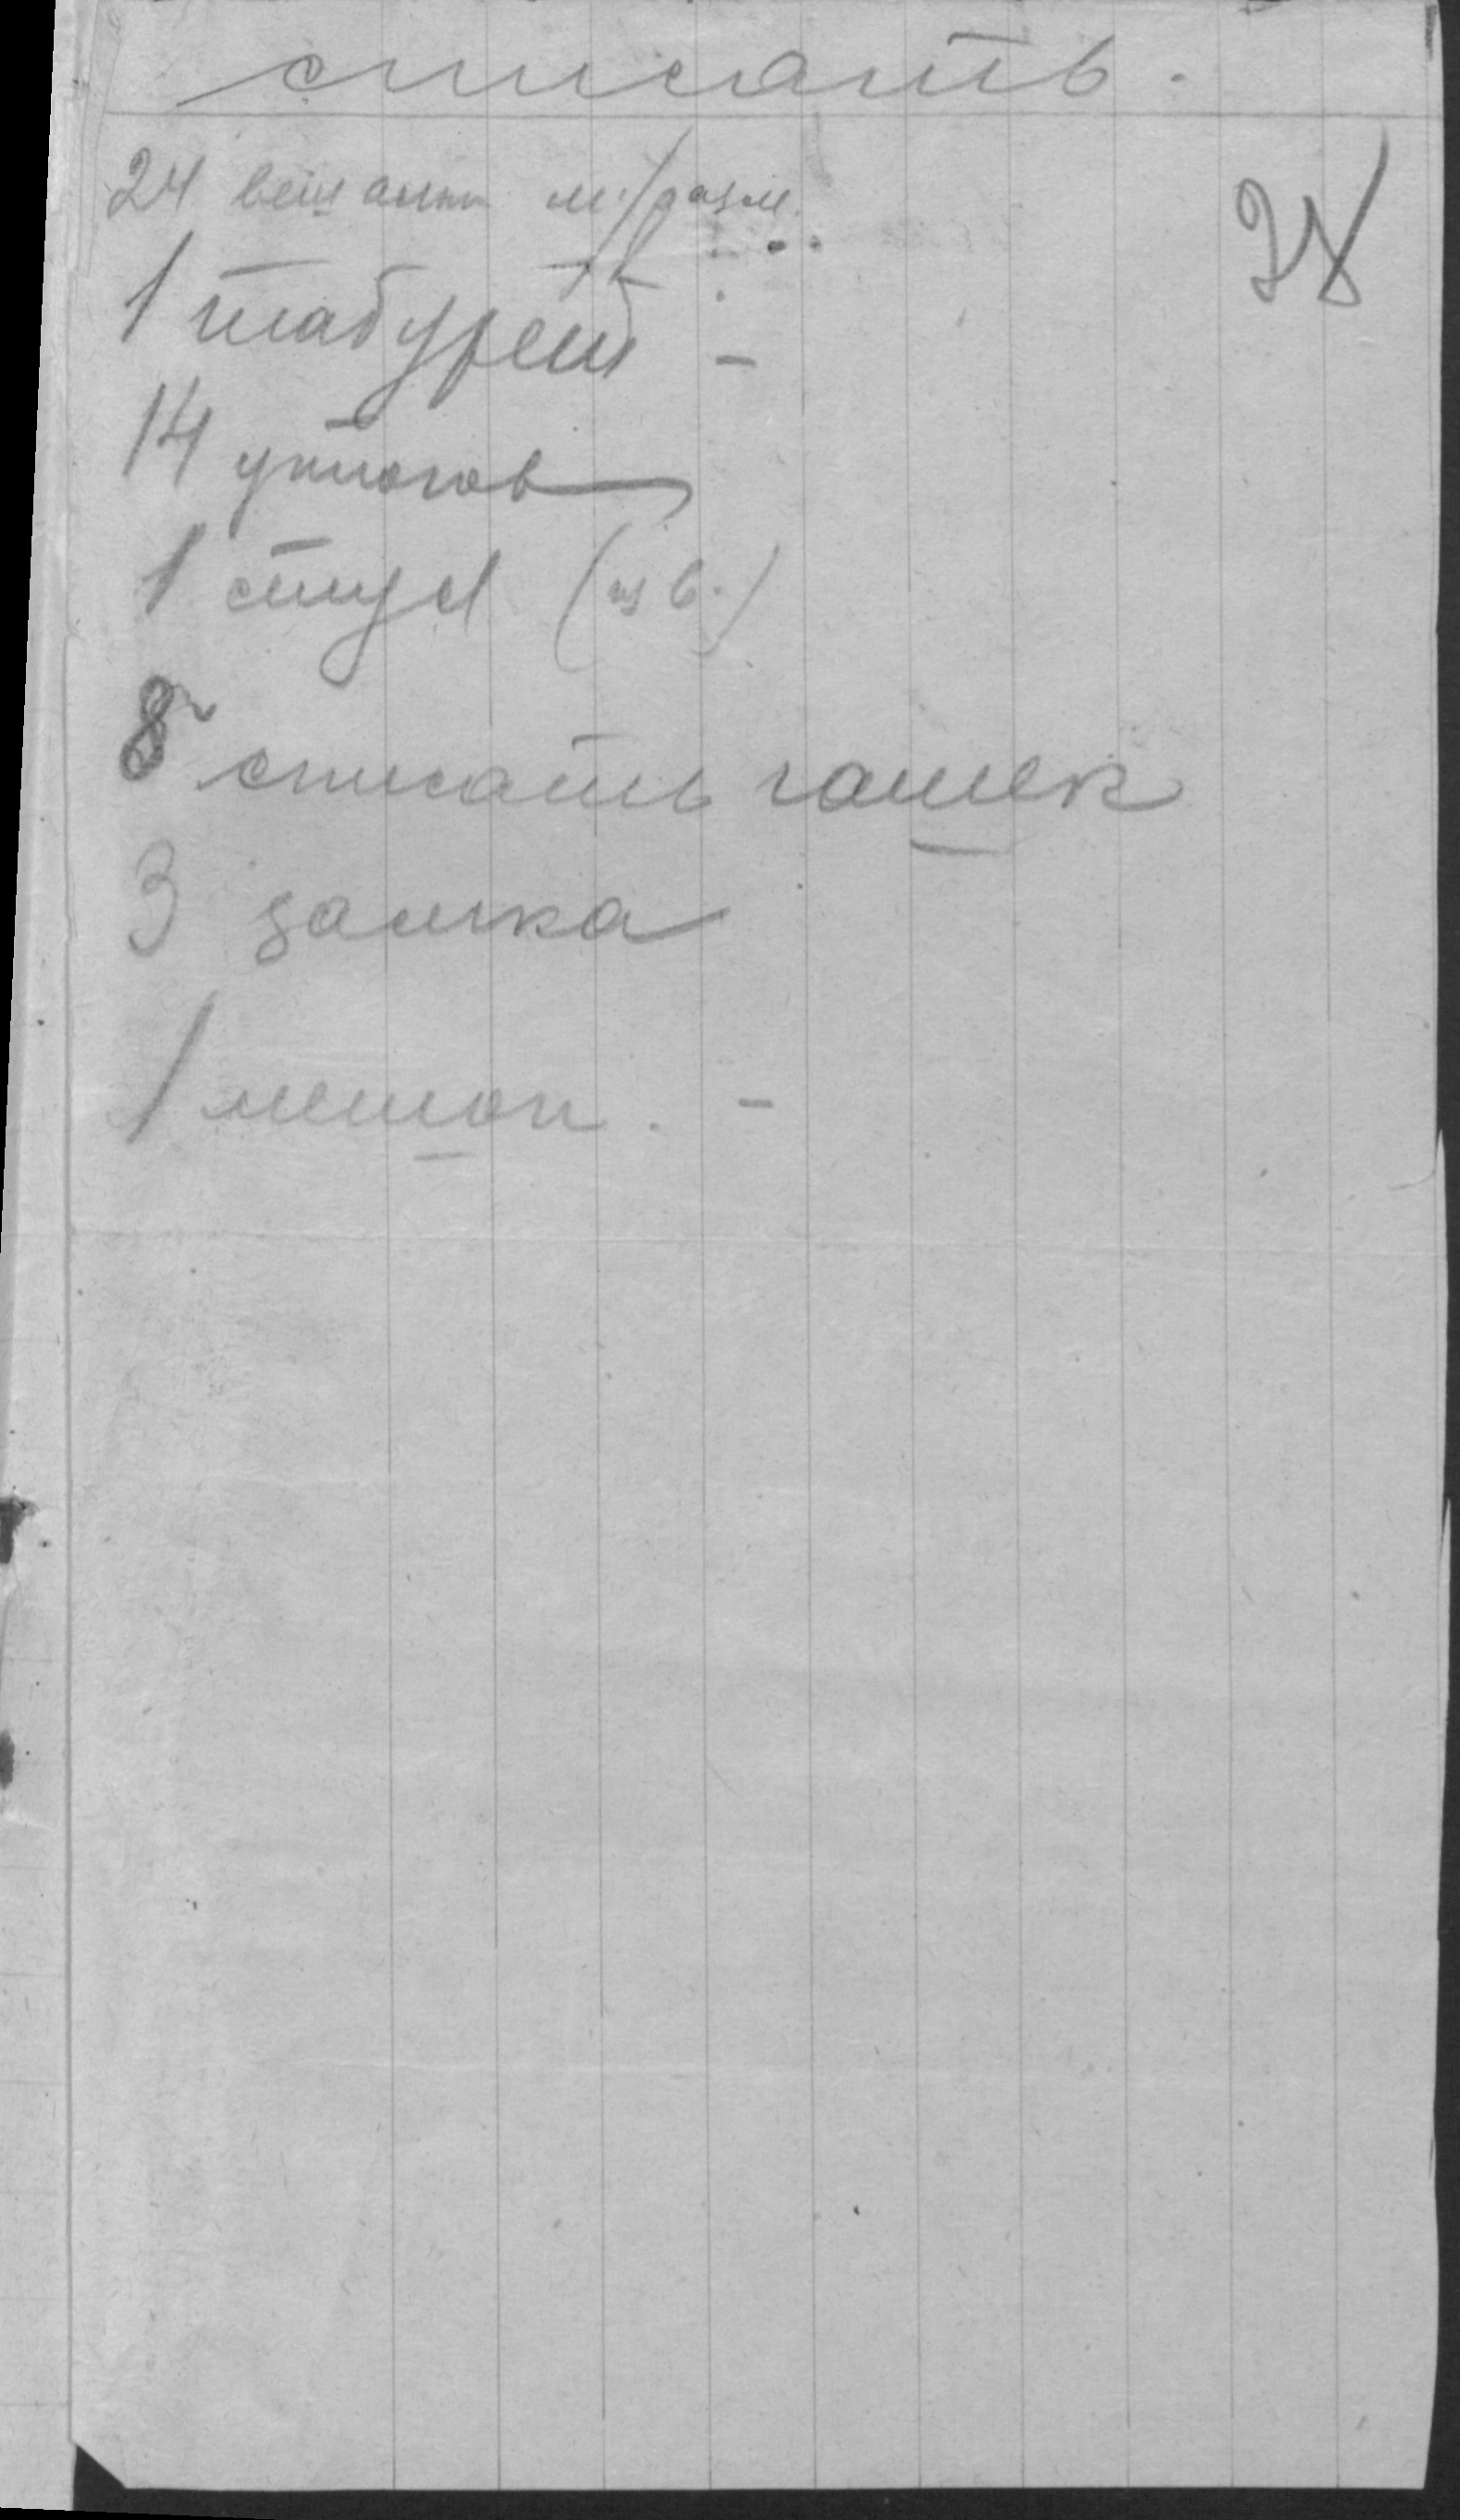 списать.
24 вешалки м/разм.
28
1 табурет -
14 утюгов
1 стул (изв.)
8 списать чашек
3 замка
1 мешок. -